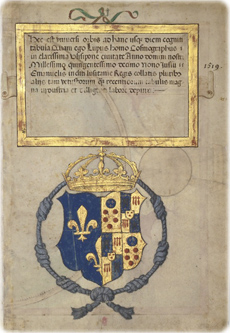 Hec est universi orbis ad hanc usqz diem cogniti
tabula Quam ego Lupus homo Cosmographus
in clarissima Ulisipone civitate Anno domini nostri
Millessimo quingentessimo decimo nono Jussu
Emanuelis incliti lusitanie Regis collatis pluribs
aliis tam vetustiorum qz recentiorum tabulis mag
na industria et diligenti labore depinxi
1519.